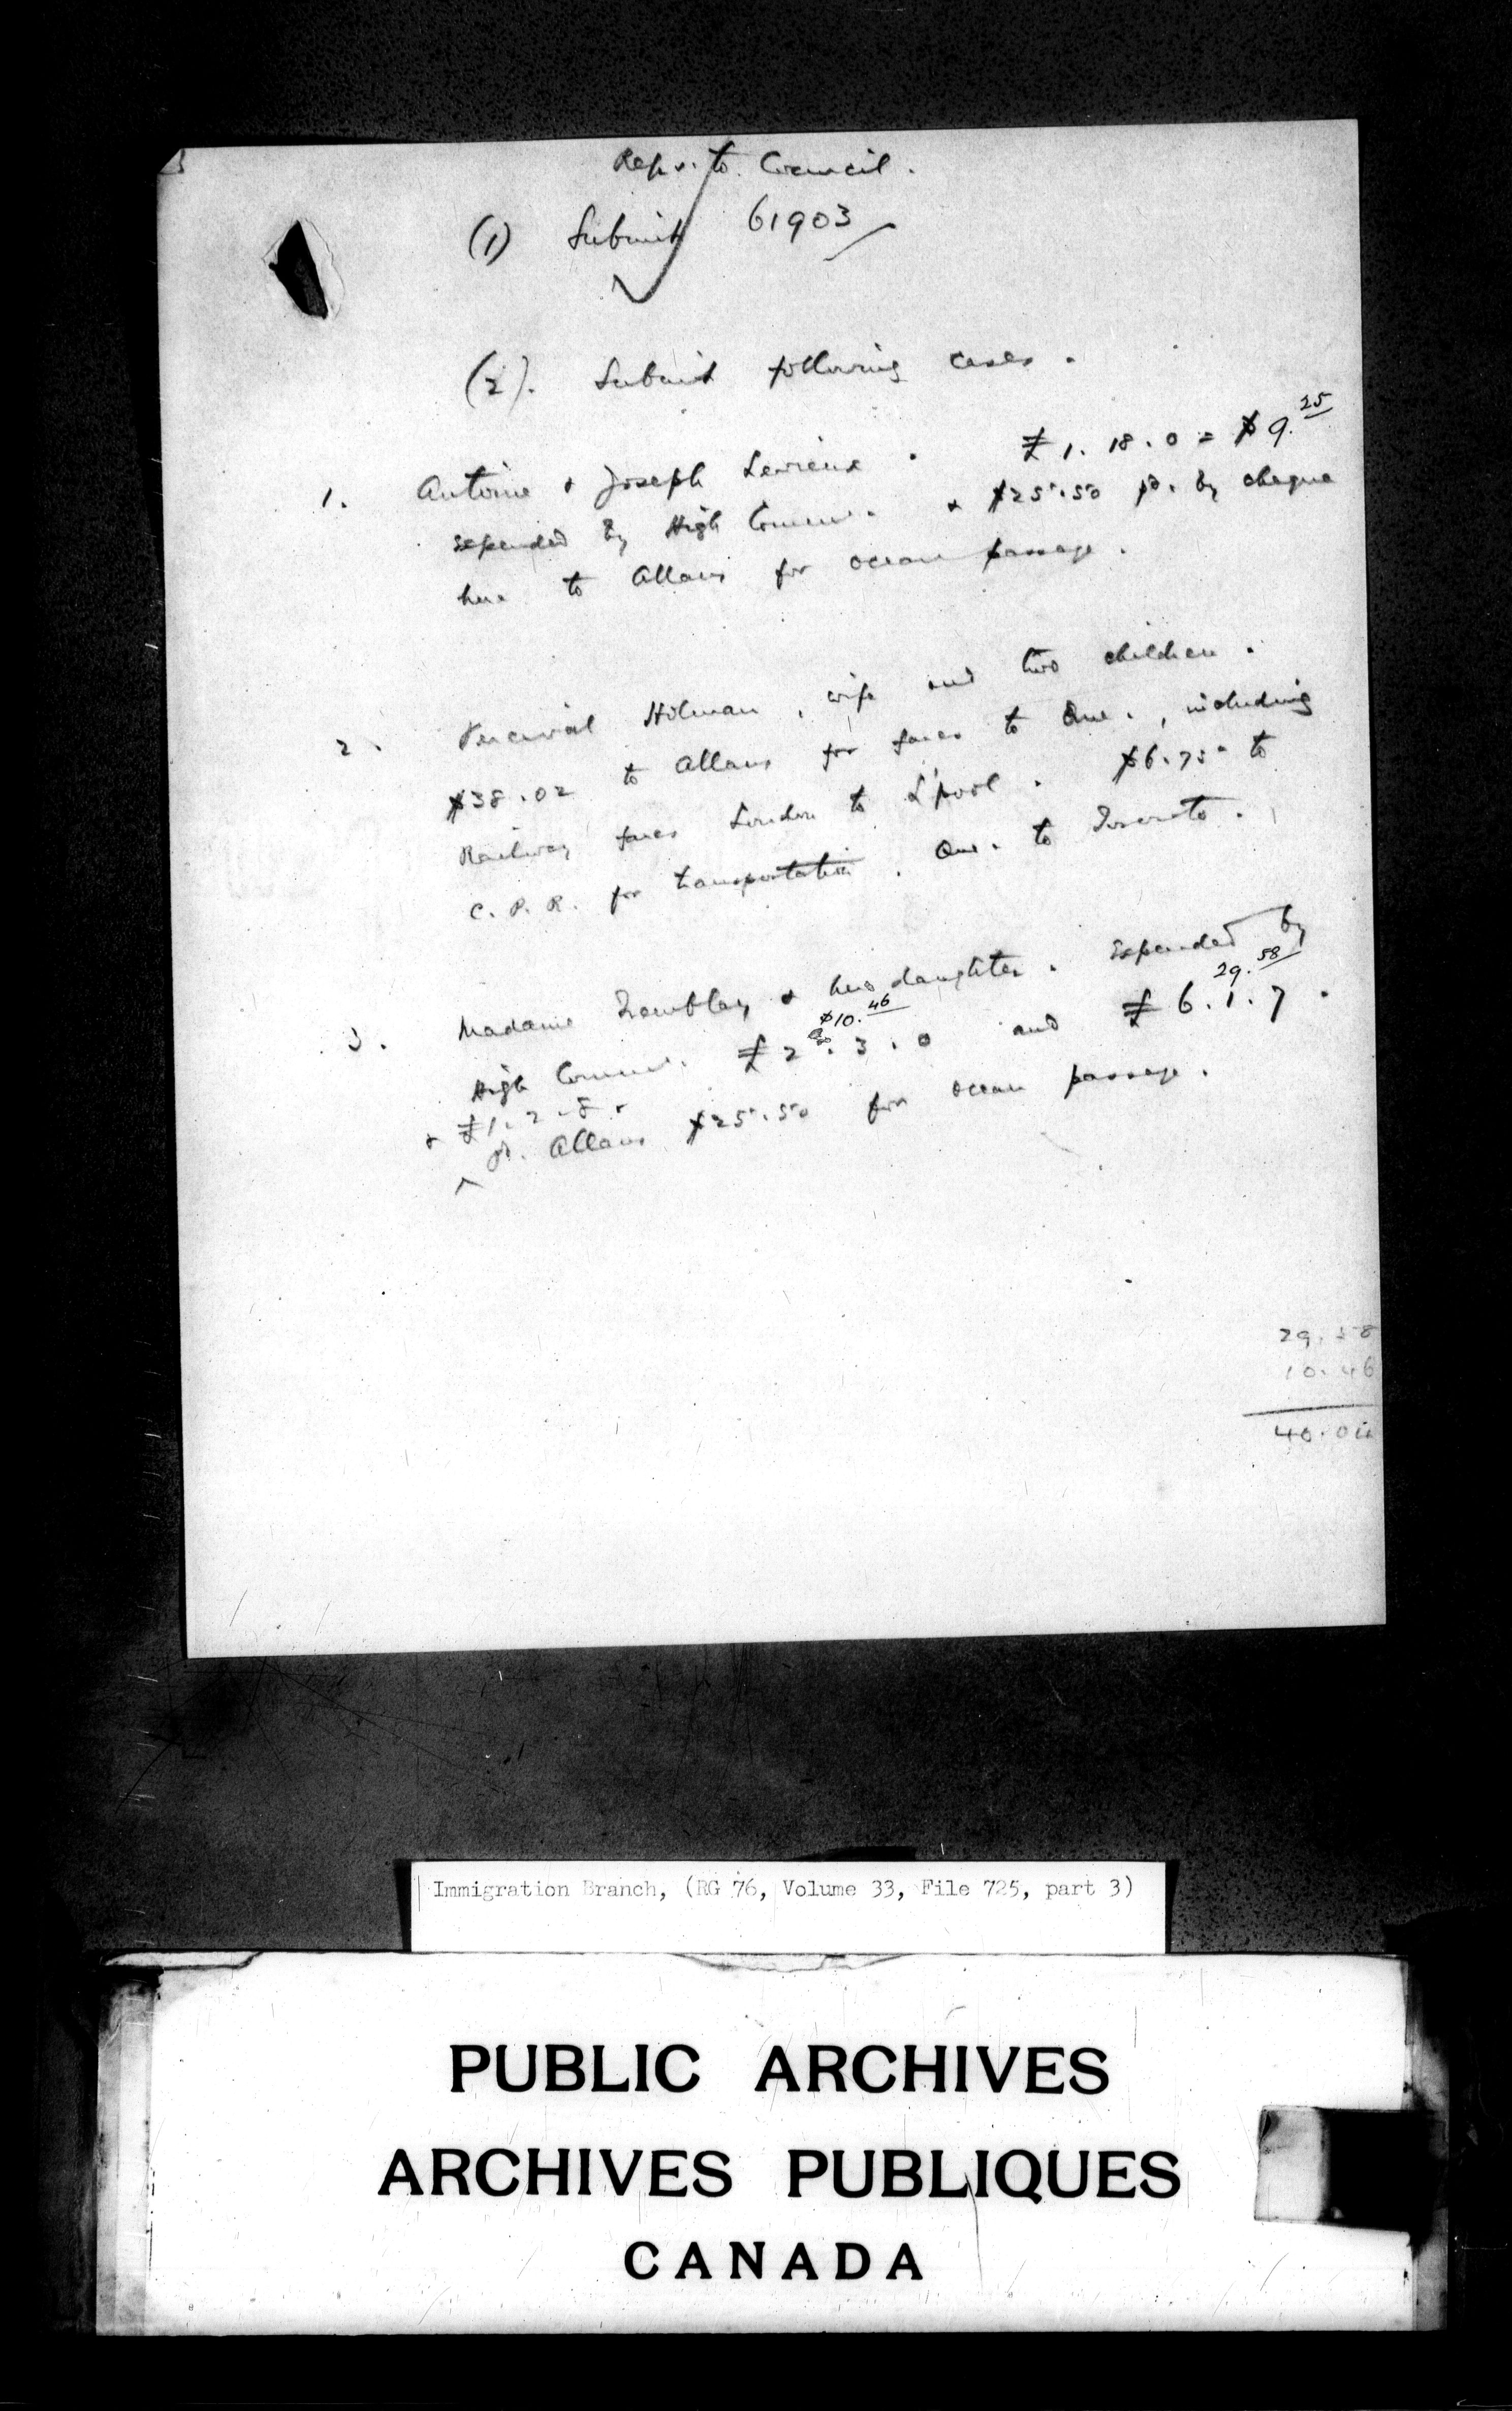 Repr. to Council.
(1) Submit 61903
(2). Submit following cases.
1. Antoine & Joseph Lemieux. £1.18.0 = $9.25
expended by High Commr. & $25.50 pd. by cheque
here to Allans for ocean passage.
2. Percival Hilman, wife and two children.
$38.02 to Allans for fares to Que., including
Railway fares London to L'pool. $6.75 to
C.P.R. for transportation. Que. to Toronto.
3. Madame Tremblay & her daughter. Expended by
$10.46 29.58
High Commr. £2.3.0 and £6.1.7.
& £1.2.8.
pd. Allans $25.50 for ocean passage.
29.58
10.46
40.04
Immigration Branch, (RG 76, Volume 33, File 725, part 3)
PUBLIC ARCHIVES
ARCHIVES PUBLIQUES
CANADA